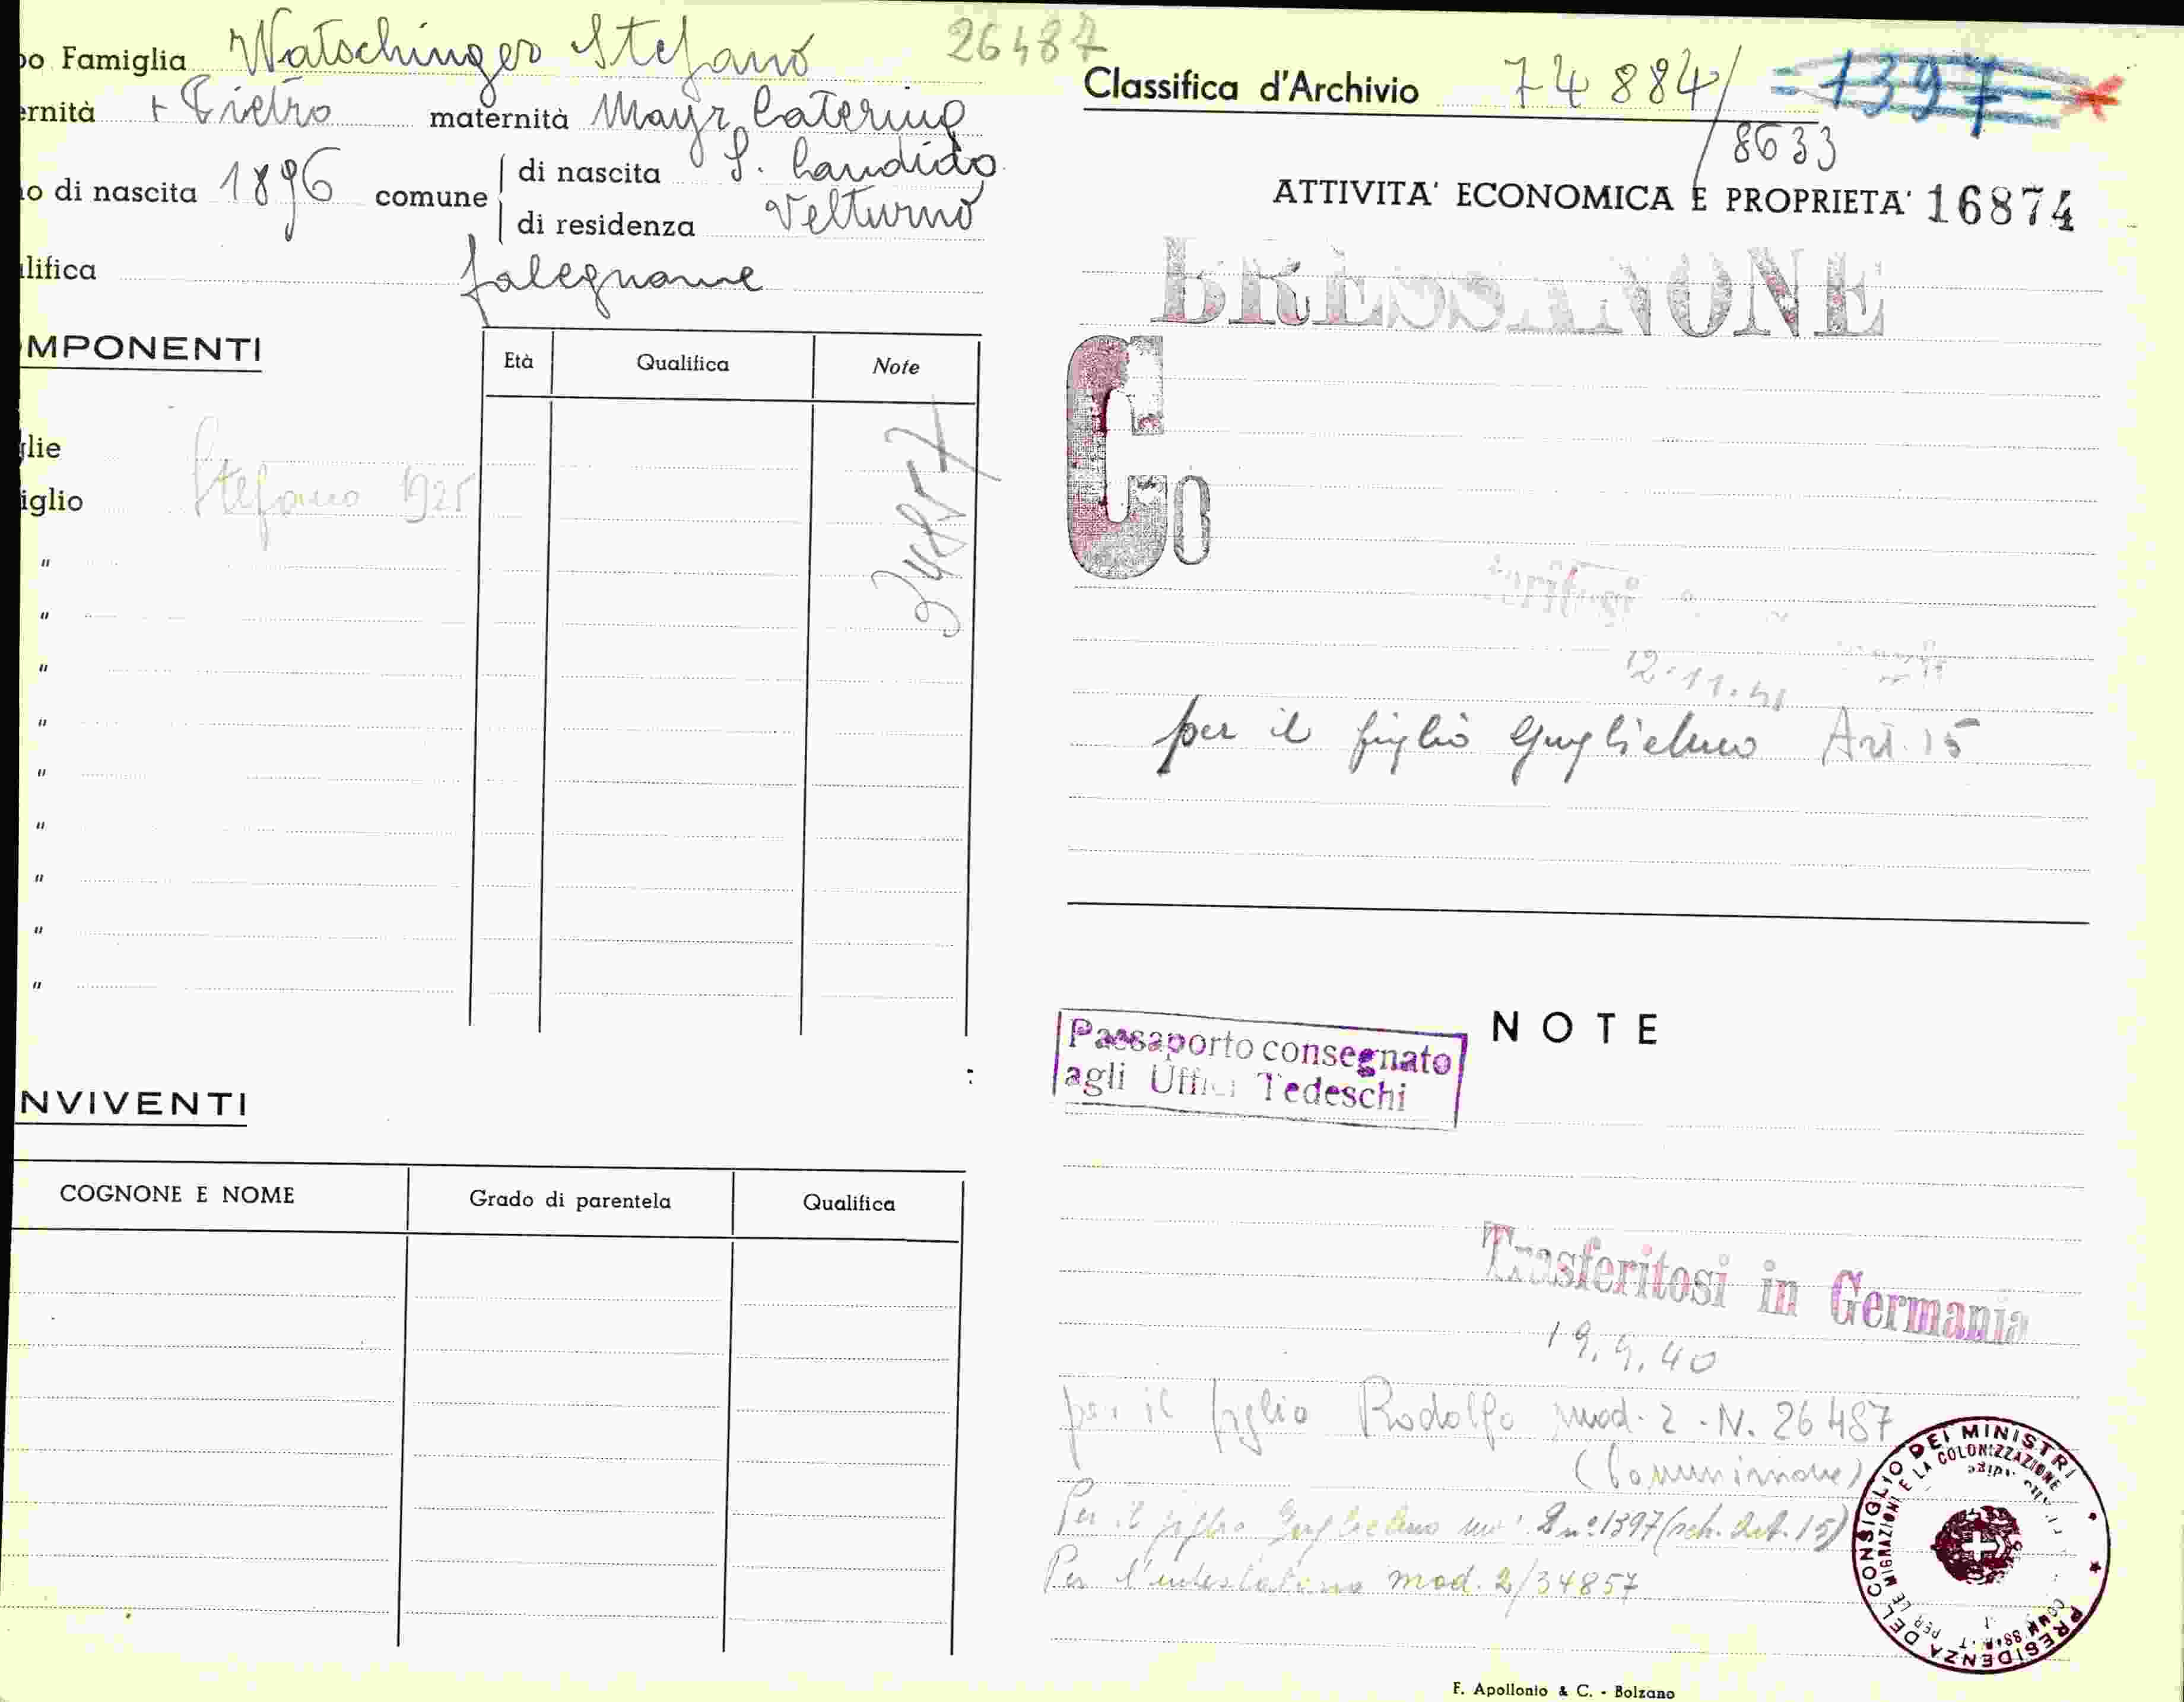 po Famiglia Watschinger Stefano 26487
ernità + Pietro maternità Mayr Caterina
no di nascita 1896 comune di nascita S. Candido
di residenza Velturno
lifica falegname
MPONENTI
Età Qualifica Note
glie
iglio Stefano 1925
"
"
"
"
"
"
"
"
"
34857
NVIVENTI
COGNONE E NOME Grado di parentela Qualifica
Classifica d'Archivio 74884/ 1397
8633
ATTIVITA' ECONOMICA E PROPRIETA' 16874
BRESSANONE
Co
12.11.41
per il figlio Guglielmo Art. 15
NOTE
Passaporto consegnato
agli Uffici Tedeschi
Trasferitosi in Germania
19.9.40
per il figlio Rodolfo mod. 2 - N. 26487
(Comunione)
Per il figlio Guglielmo 2 nº 1397 (sch. Art. 15)
Per l'intestatario mod. 2/34857
PRESIDENZA DEL CONSIGLIO DEI MINISTRI
PER LE MIGRAZIONI E LA COLONIZZAZIONE
F. Apollonio & C. - Bolzano